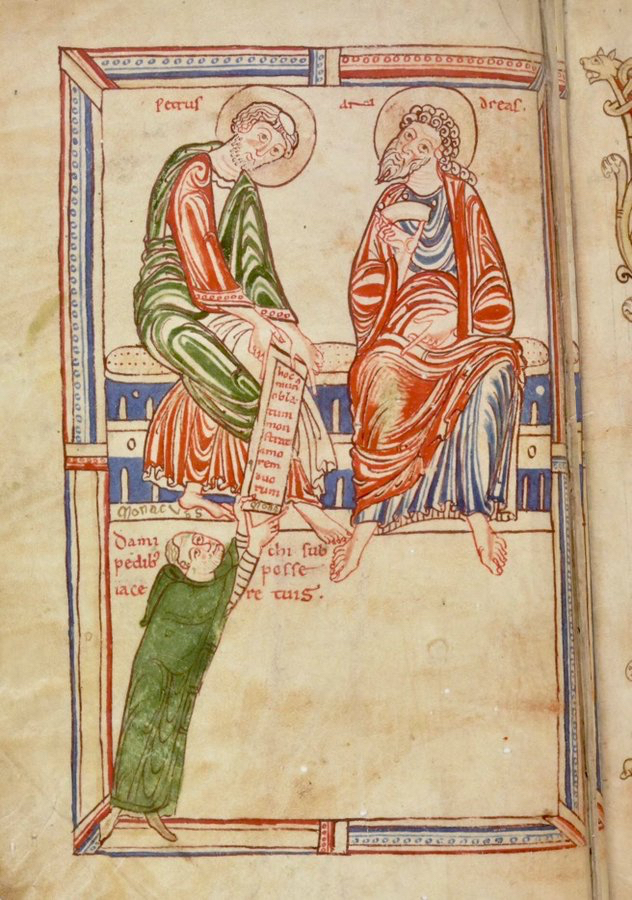 petrus
dreas.
hoc
obla
tum
mon
strat
amo
rem
duo
rum
monacvs
dami chi sub
pedib' posse
iace re tuis.